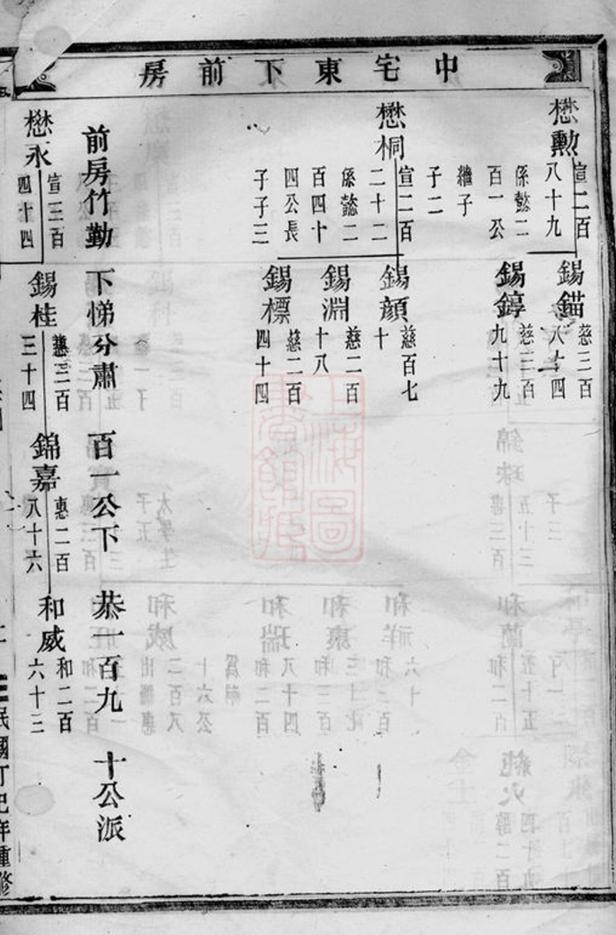 中宅東下前房
懋勳
宣二百
八十九
係懿二
百一公
繼子
子二
懋桐
宣二百
二十二
係懿二
百四十
四公長
子子三
前房竹勤下悌分肅百一公下恭一百九十公派
懋永
宣三百
四十四
錫錨
慈三百
八十四
錫錞
慈三百
九十九
錫顏
慈百七
十
錫淵
慈二百
十八
錫標
慈二百
四十四
錫桂
慈三百
三十四
錦嘉
惠二百
八十六
和威
和二百
六十三
民國丁巳年重修
上海圖
書館藏